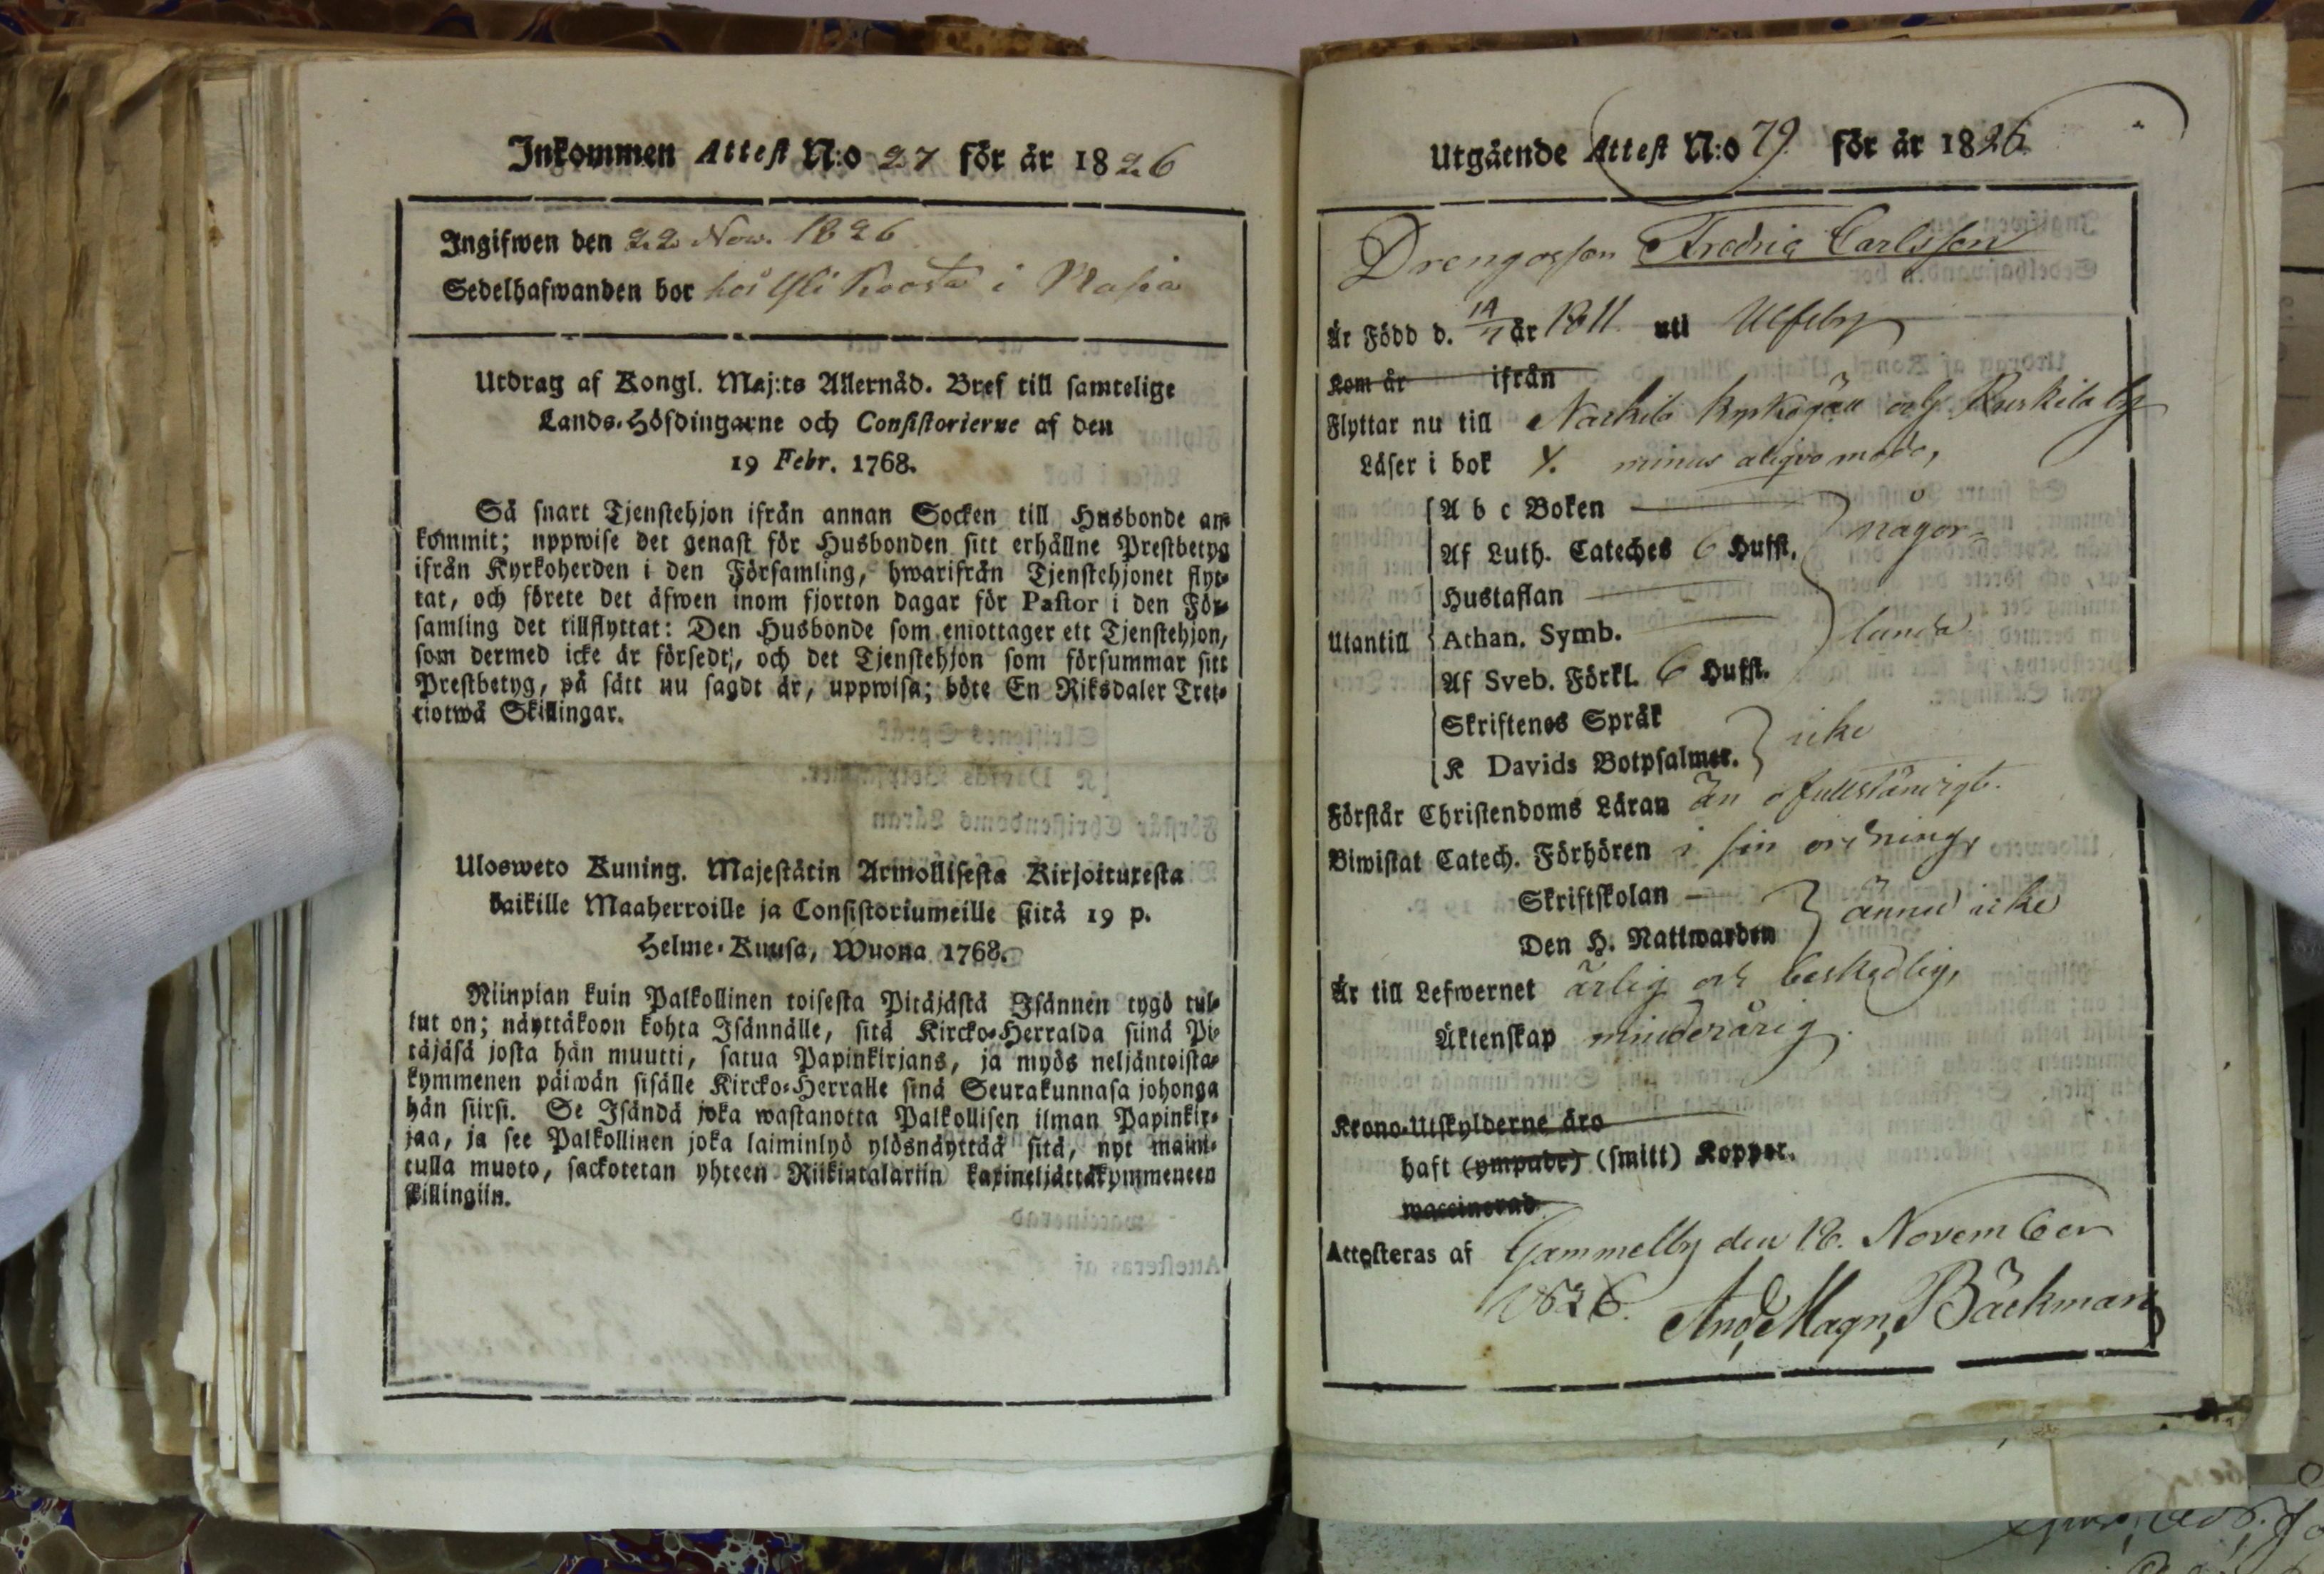 Inkommen Attest N:o 27 för år 1826
Ingifwen den 22 Nov. 1826
Sedelhafwanden bor hos i
Utdrag af Kongl. Maj:ts Allernåd. Bref till samtelige
Lands-Höfdingarne och Consistorierne af den
19 Febr. 1768.
Så snart Tjenstehjon ifrån annan Socken till Husbonde an-
kommit; uppwise det genast för Husbonden sitt erhållne Prestbetyg
ifrån Kyrkoherden i den Församling, hwarifrån Tjenstehjonet flyt-
tat, och förete det äfwen inom fjorton dagar för Pastor i den För-
samling det tillflyttat: Den Husbonde som emottager ett Tjenstehjon,
som dermed icke är försedt, och det Tjenstehjon som försummar sitt
Prestbetyg, på sätt nu sagdt är, uppwisa; böte En Riksdaler Tret-
tiotwå Skillingar.
Ulosweto Kuning. Majestätin Armollisesta Kirjoituxesta
kaikille Maaherroille ja Consistoriumeille siitä 19 p.
Helme-Kuusa, Wuona 1768.
Niinpian kuin Palkollinen toisesta Pitäjästä Isännen tygö tul-
lut on; näyttäkoon kohta Isännälle, sitä Kircko-Herralda siinä Pi-
täjäsä josta hän muutti, satua Papinkirjans, ja myös neljäntoista-
kymmenen päiwän sisälle Kircko-Herralle sinä Seurakunnasa johonga
hän siirsi. Se Isändä joka wastanotta Palkollisen ilman Papinkir-
jaa, ja see Palkollinen joka laiminlyö ylösnäyttää sitä, nyt maini-
tulla muoto, sackotetan yhteen Riikintalariin kaxineljättäkymmeneen
killingiin.
Utgående Attest N:o 79 för år 1826
Drengossen Fredric Carlsson
Är Född d. 14/7 år 1811 uti Ulfsby
Kom år ifrån
Flyttar nu till Nackila Kyrkogäll och Ruskila by
Läser i bok Y. minus aliqvo modo,
A b c Boken
Af Luth. Cateches 6 Hufst. någor-
Hustaflan
Utantill Athan. Symb. lunda
Af Sveb. Förkl. 6 Hufst.
Skriftenes Språk
K Davids Botpsalmer. icke
Förstår Christendoms Läran än ofullständigt.
Biwistat Catech. Förhören i sin ordning,
Skriftskolan
Den H. Nattwarden ännu icke
Är till Lefwernet ärlig och beskedlig,
Äktenskap minderårig.
Krono-Utskylderne äro
haft (ympade) (smitt) Koppor.
waccinerad
Attesteras af Gammelby den 18. November
1826. And. Magn. Bäckman